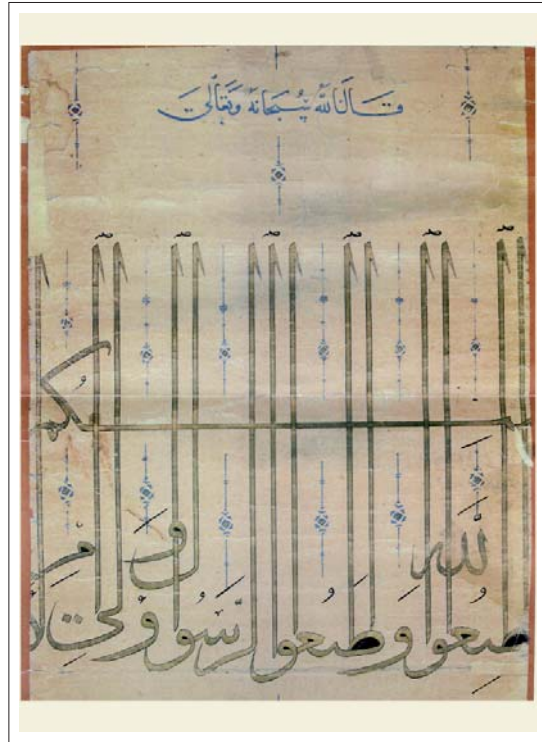 قَالَ اللهُ سُبْحَانَهُ وَتَعَالَىٰ
اطيعوا الله واطيعوا الرسول واولى الامر منكم